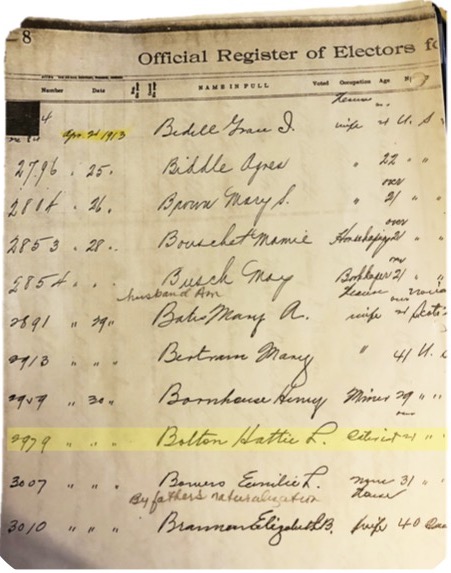 8
Official Register of Electors fo
Number Date NAME IN FULL Voted Occupation Age
4 Apr. 24 1913 Bedell Grace I. House wife 21 U. S
2796 " 25 " Biddle Agnes " 22 " "
2814 " 26 " Brown Mary S. " over 21 " "
2853 " 28 " Bouschet Mamie over 21 " "
2854 " " " Busch May Bookkeeper over 21 " "
husband Am
2891 " 29 " Bates Mary A. House wife over 21
2913 " " " Bertram Mary " 41 U.
2959 " 30 " Bornhouse Henry Miner 29 " "
2979 " " " Bolton Hattie L. over 21 " "
3007 " " " Bowers Emilie L. none 31 " "
By fathers naturalization
3010 " " " Brannan Elizabeth B. House wife 40